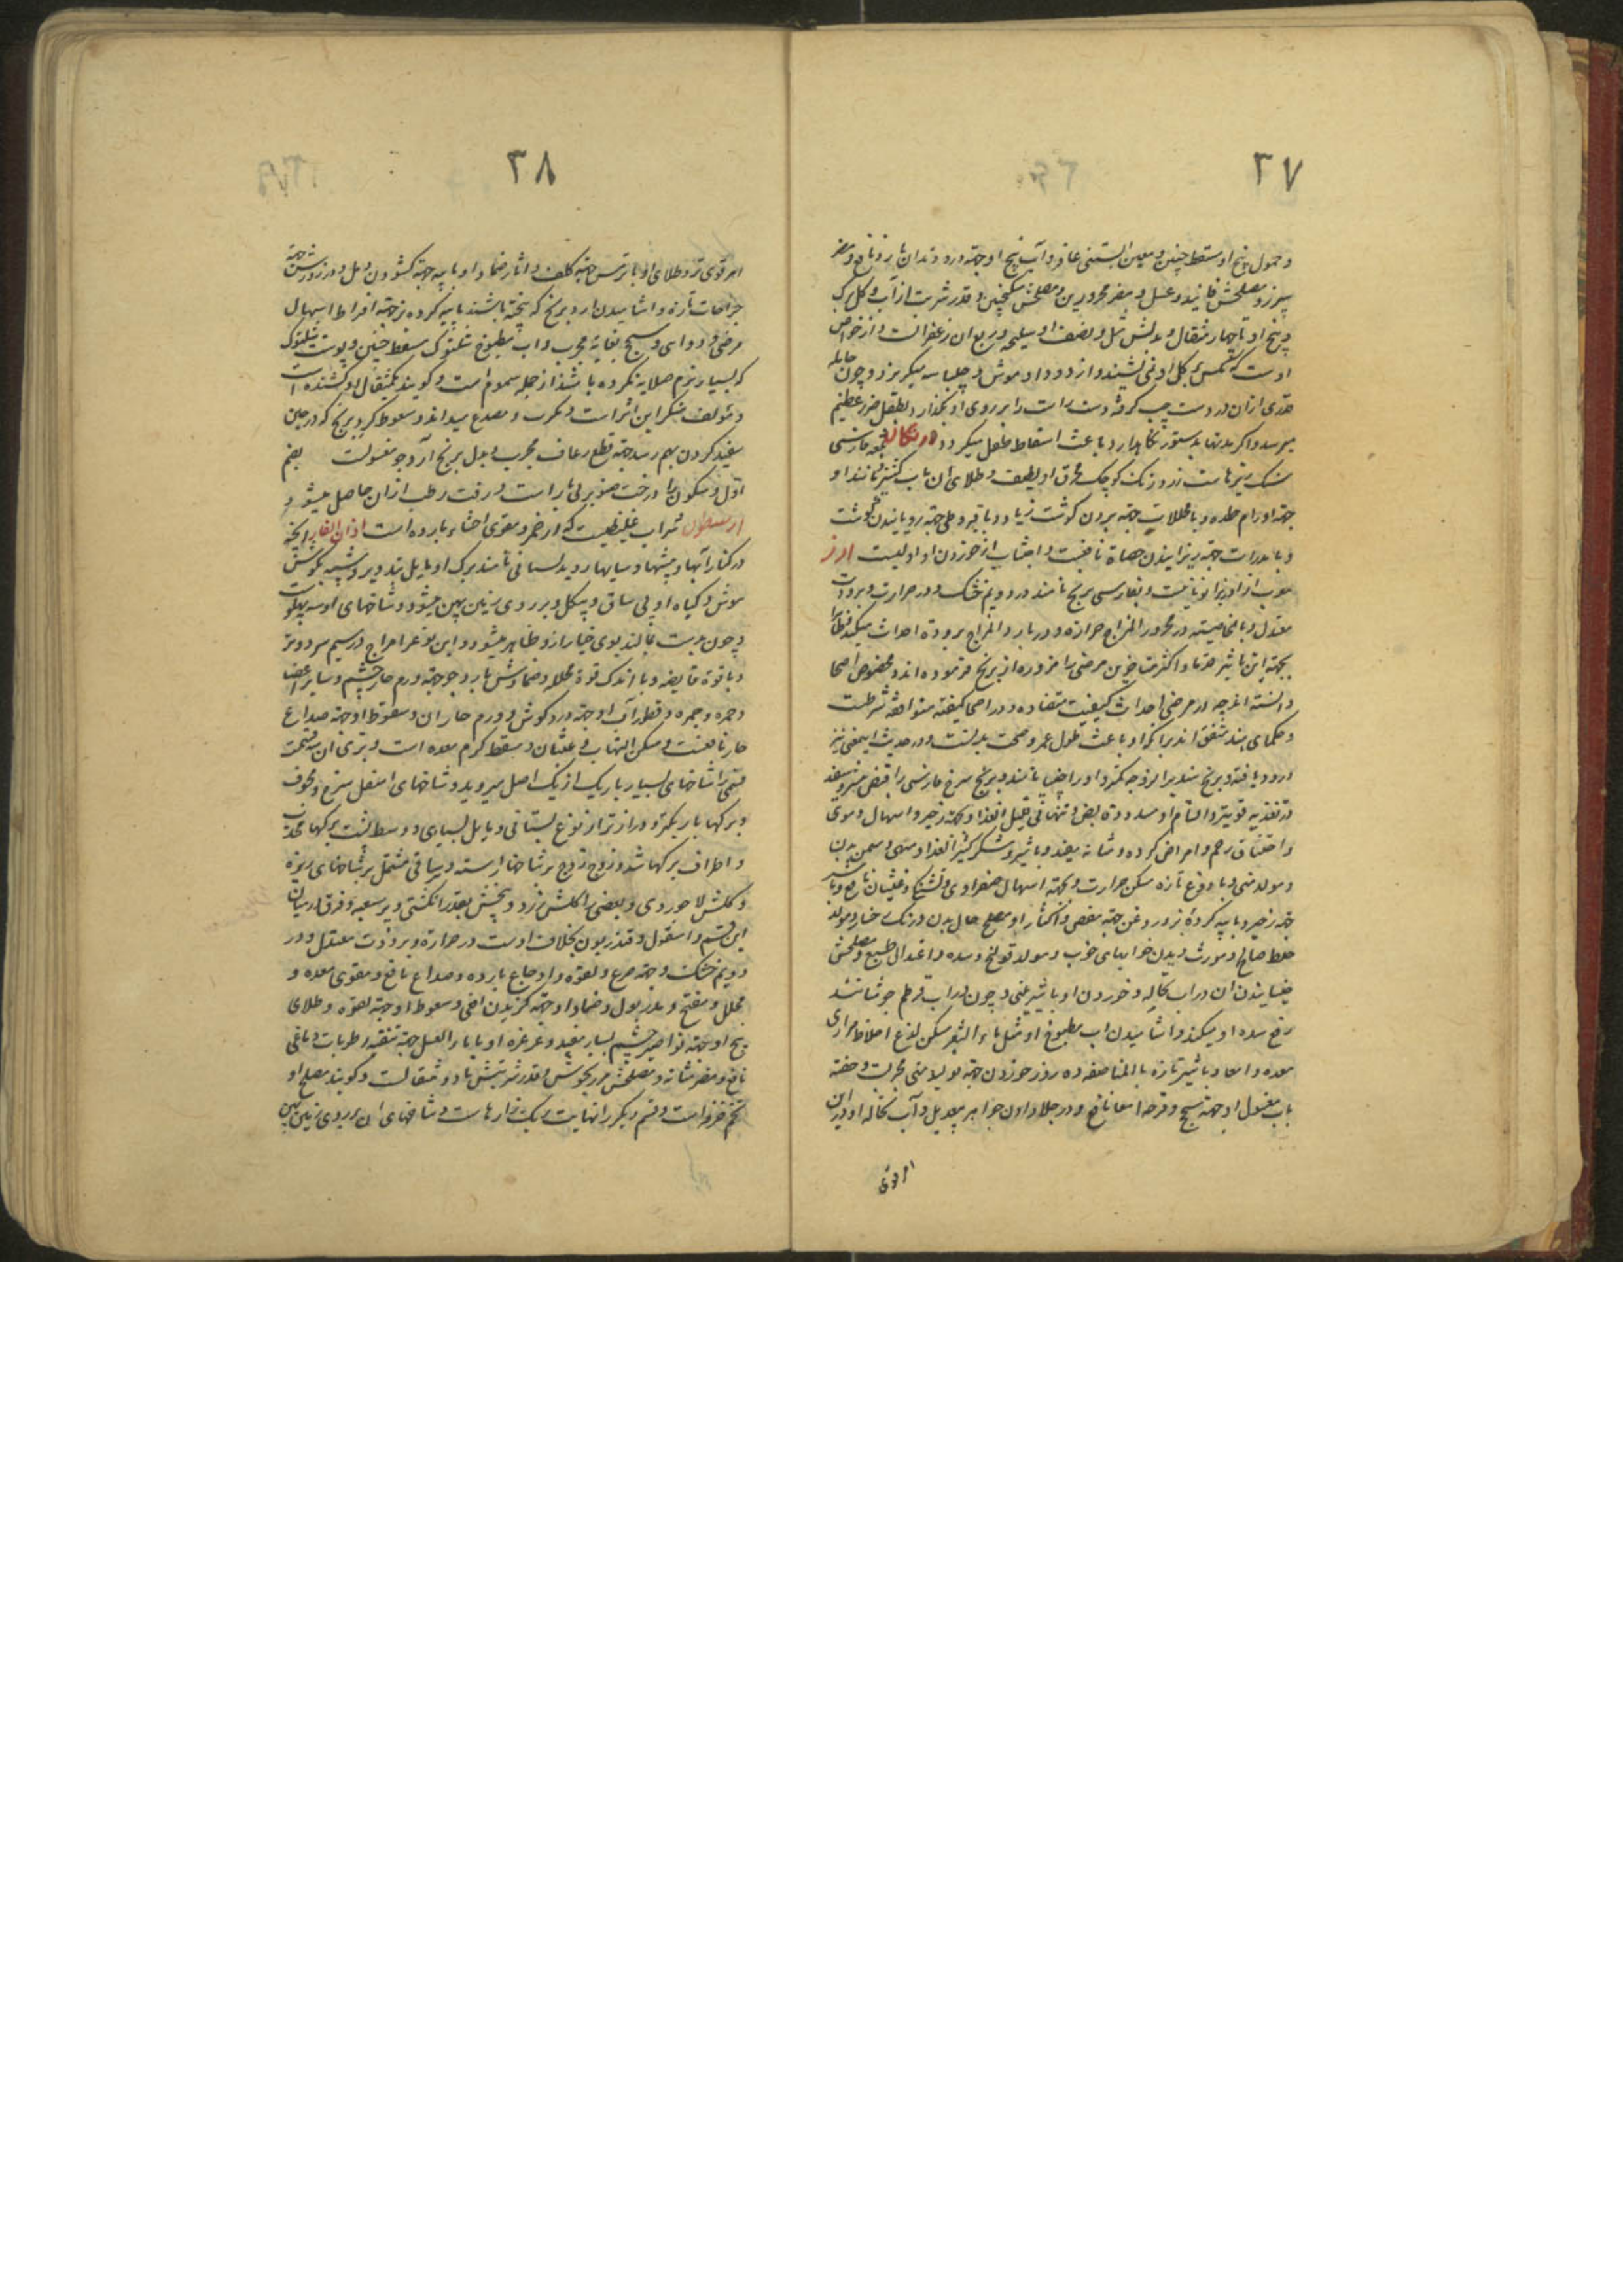 ۳۷
و حمول بیخ او مسقط جنین و معین آبستنی عاقر و آب بیخ او جهته درد دندان بارد نافع و مضر
سپرز و مصلحش فانید و عسل و مضر محرورین و مصلحش سکنجبین و قدر شربت از آب و گل و برگ
و بیخ او تا چهار مثقال و بدلش مثل و نصف او سلیخه و ربع آن زعفرانست و از خواص
اوست که مگس بر گل او نمی نشیند و از دود او موش و چلپاسه میگریزد و چون حامله
قدری از آن در دست چپ گرفته دست راست را بر روی او بگذارد بطفل ضرر عظیم
میرسد و اگر مدتها بدستور نگاهدارد باعث اسقاط طفل میگردد
سنگ ریزهاست زرد رنگ کوچک محرق او لطیف و طلای آن با آب گشنیز و مانند او
جهته اورام حاره و با محللات جهته بردن گوشت زیاد و با قیروطی جهته رویانیدن گوشت
و با مدرات جهته ریزانیدن حصاة نافعست و اجتناب از خوردن او اولیست ارز
معرب از اوریزای یونانیست و بفارسی برنج نامند در دویم خشک و در حرارت و برودت
معتدل و بالخاصیته در محرور المزاج حراره و در بارد المزاج بروده احداث میکند و ظاهرا
بجهته این تاثیر قدما و اکثر متاخرین مرضی را مزوره از برنج فرموده اند و مخصوص اصحا
دانسته اند چه در مرضی احداث کیفیت متضاده و در اصحا کیفیته متوافقه شرطست
و حکمای هند متفق اند بر آنکه او باعث طول عمر و صحت بدنست و در حدیث این معنی نیز
ورود یافته و برنج سفید را لزوجه کمتر و او را چنپا نامند و برنج سرخ فارسی را قبض بیشتر و سفید
در تغذیه قویتر و اقسام او مسدد و قابض و تنهائی قلیل الغذا و جهته زحیر و اسهال دموی
و اختناق رحم و امراض گرده و مثانه مفید و با شیر و شکر کثیر الغذا و مبهی و مسمن بدن
و مولد منی و با دوغ تازه مسکن حرارت و جهته اسهال صفراوی و تشنگی و غثیان نافع و با شیر
جهته زحیر و با پیه گرده بز و روغن جهته مغص و اکثار او مصلح حال بدن و رنگ رخسار و مولد
خلط صالح و مورث دیدن خوابهای خوب و مولد قولنج و سده و اعتدال طبع و مصلحش
خیسانیدن آن در آب نخاله و خوردن او با شیرینی و چون در آب قرطم جوشانند
رفع سده او میکند و آشامیدن آب مطبوخ او مثل ماء الشعیر مسکن لذع اخلاط مراری
معده و امعا و با شیر تازه بالمناصفه ده روز خوردن جهته تولید منی مجربست و حقنه
بآب مغسول او جهته سحج و قرحه امعا نافع و در جلا دادن جواهر بیعدیل و آب نخاله او در این
۳۸
امر قوی تر و طلای او با ترمس جهته کلف و آثار و ضماد او با پیه جهته گشودن دمل و ذرورش جهته
جراحات تازه و آشامیدن آرد برنج که پخته باشند با پیه گرده بز جهته افراط اسهال
مرضی و دوائی و سحج بغایة مجرب و آب مطبوخ شلتوک مسقط جنین و پوست شلتوک
که بسیار نرم صلایه نکرده باشند از جمله سموم است و گویند یکمثقال او کشنده است
و مؤلف منکر این اثر است و مکرب و مصدع میداند و سعوط گرد برنج که در حین
سفید کردن بهم رسد جهته قطع رعاف مجرب و بدل برنج آرد جو مغسولست بضم
اول و سکون را درخت صنوبر بی بار است و زفت رطب از آن حاصل میشود
ارسطون شراب غلیظیست که از خمر و مقوی احشاء بارده است اذان الفار آنچه
در کنار آبها و چشمها و سایها روید بستانی نامند برگ او مایل بتدویر و شبیه بگوش
موش و گیاه او بی ساق و بیگل و بر روی زمین پهن میشود و شاخهای او سه پهلو
و چون بدست بمالند بوی خیار ازو ظاهر میشود و این نوع را مزاج در سیم سرد و تر
و با قوة قابضه و با اندک قوة محلله و ضمادش بارد جو جهته ورم حار چشم و سایر اعضا
و حمره و جمره و قطور آب او جهته درد گوش و ورم حار آن و سعوط او جهته صداع
حار نافعست و مسکن التهاب و غثیان و مسقط کرم معده است و بری آن سه قسمست
قسمی را شاخهای بسیار باریک از یک اصل میروید و شاخهای اسفل سرخ و مجوف
و برگها باریکتر و درازتر از نوع بستانی و مایل بسیاهی و وسط پشت برگها محدب
و اطراف برگها تند و زوج زوج بر شاخها رسته و ساقی مشتمل بر شاخهای ریزه
و گلش لاجوردی و بعضی را گلش زرد و بیخش بقدر انگشتی و پر شعبه و فرق در میان
این قسم و اسقولوقندریون بخلاف اوست در حراره و برودت معتدل و در
دویم خشک و جهته صرع و لقوه و اوجاع بارده و صداع نافع و مقوی معده و
محلل و مفتح و مدر بول و ضماد او جهته گزیدن افعی و سعوط او جهته لقوه و طلای
بیخ او جهته نواصیر چشم بسیار مفید و غرغره او با ماء العسل جهته تنقیه رطوبات دماغی
نافع و مضر مثانه و مصلحش مرزنجوش و قدر شربتش تا دو مثقالست و گویند مصلح او
تخم خرفه است و قسم دیگر را نهایت یک زارهاست و شاخهای آن بر روی زمین پهن
امر قوی